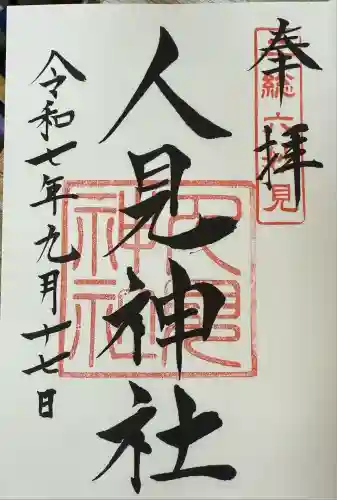 奉拝
人見神社
令和七年九月十七日
人見
神社